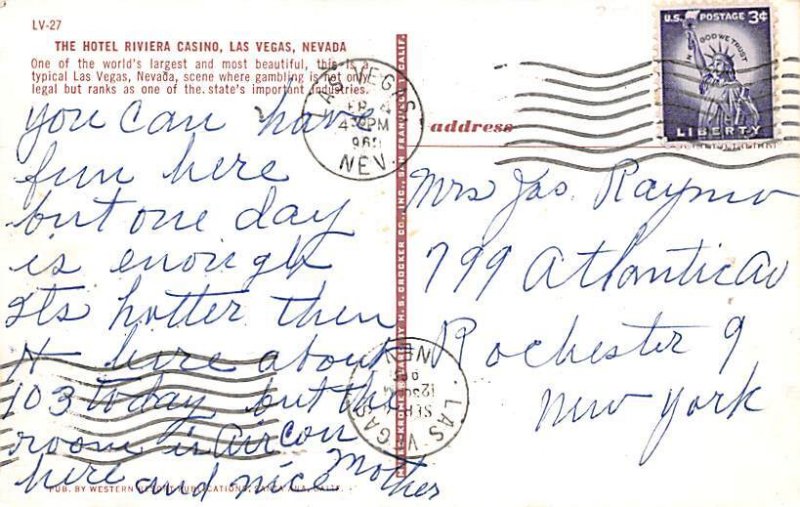 LV-27
THE HOTEL RIVIERA CASINO, LAS VEGAS, NEVADA
One of the world's largest and most beautiful, this is a
typical Las Vegas, Nevada, scene where gambling is not only
legal but ranks as one of the state's important industries.
you can have
fun here
but one day
is enough
Its hotter then
H here about
103 today but the
room is Air con
here and nice
Mother
PUB. BY WESTERN RESORT PUBLICATIONS, SANTA ANA, CALIF.
H. S. CROCKER CO., INC., SAN FRANCISCO 1, CALIF.
LAS VEGAS
4 PM
NEV.
U.S. POSTAGE 3¢
IN GOD WE TRUST
LIBERTY
address
Mrs Jas. Raymo
799 Atlantic Av
Rochester 9
New York
LAS VEGAS
SEP
NEV